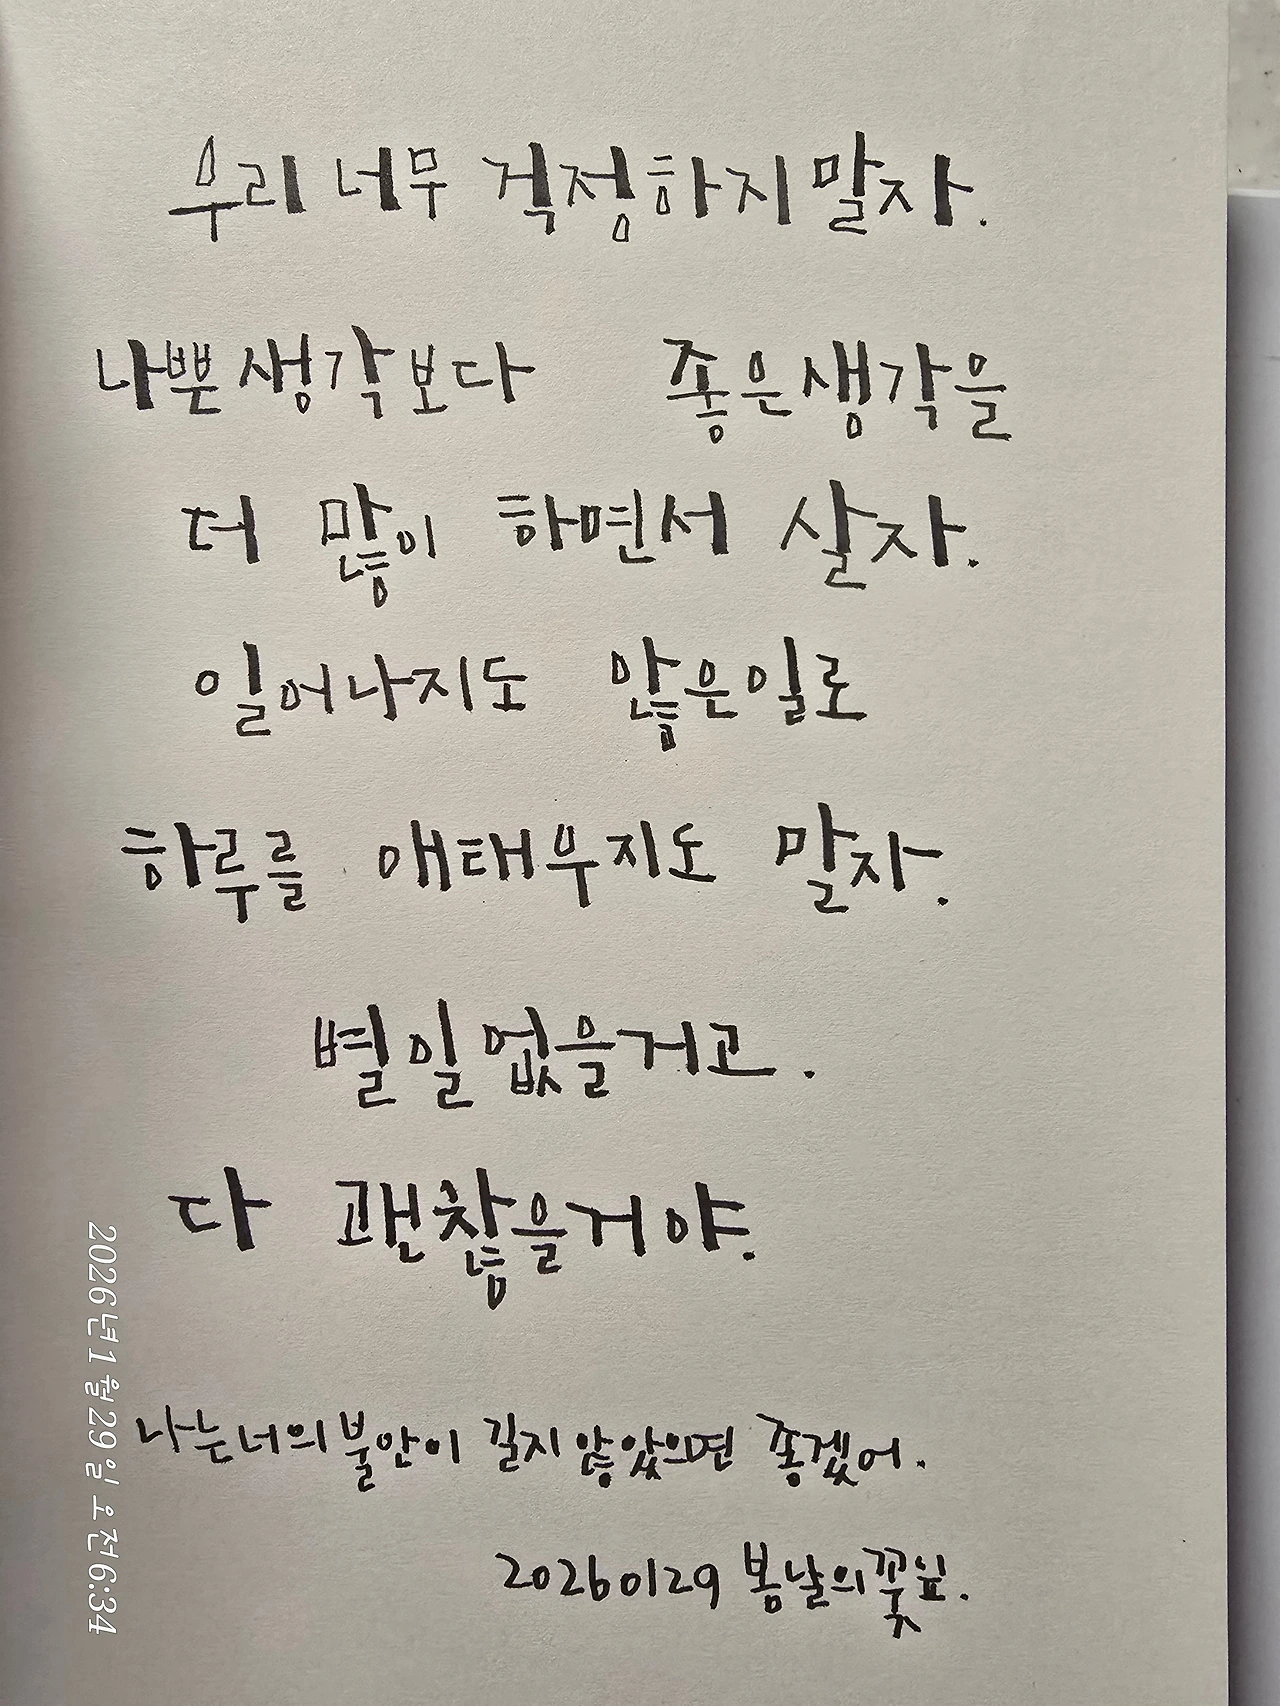 우리 너무 걱정하지 말자.
나쁜생각보다 좋은생각을
더 많이 하면서 살자.
일어나지도 않은일로
하루를 애태우지도 말자.
별일없을거고.
다 괜찮을거야.
나는너의불안이 길지않았으면 좋겠어.
20260129 봄날의꽃잎.
2026년1월29일 오전6:34